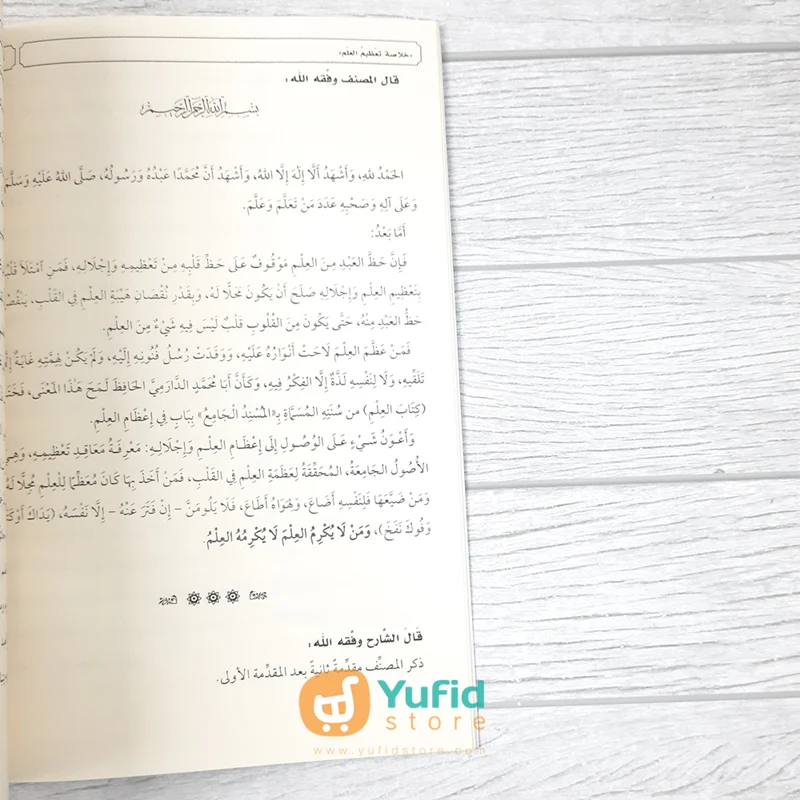 «خلاصة تعظيم العلم»
قال المصنف وفقه الله:
بسم الله الرحمن الرحيم
الحَمْدُ للهِ، وَأَشْهَدُ أَلَّا إِلٰهَ إِلَّا اللهُ، وَأَشْهَدُ أَنَّ مُحَمَّدًا عَبْدُهُ وَرَسُولُهُ، صَلَّى اللهُ عَلَيْهِ وَسَلَّمَ
وَعَلَى آلِهِ وَصَحْبِهِ عَدَدَ مَنْ تَعَلَّمَ وَعَلَّمَ.
أَمَّا بَعْدُ:
فَإِنَّ حَظَّ العَبْدِ مِنَ العِلْمِ مَوْقُوفٌ عَلَى حَظِّ قَلْبِهِ مِنْ تَعْظِيمِهِ وَإِجْلَالِهِ، فَمَنِ امْتَلَأَ
بِتَعْظِيمِ العِلْمِ وَإِجْلَالِهِ صَلَحَ أَنْ يَكُونَ مَحَلًّا لَهُ، وَبِقَدْرِ نُقْصَانِ هَيْبَةِ العِلْمِ فِي القَلْبِ، يَنْقُصُ
حَظُّ العَبْدِ مِنْهُ، حَتَّى يَكُونَ مِنَ القُلُوبِ قَلْبٌ لَيْسَ فِيهِ شَيْءٌ مِنَ العِلْمِ.
فَمَنْ عَظَّمَ العِلْمَ لَاحَتْ أَنْوَارُهُ عَلَيْهِ، وَوَفَدَتْ رُسُلُ فُنُونِهِ إِلَيْهِ، وَلَمْ يَكُنْ لِهِمَّتِهِ غَايَةٌ إِلَّا
تَلَقِّيهِ، وَلَا لِنَفْسِهِ لَذَّةٌ إِلَّا الفِكْرُ فِيهِ، وَكَأَنَّ أَبَا مُحَمَّدٍ الدَّارِمِيَّ الحَافِظَ لَمَحَ هَذَا المَعْنَى،
(كِتَابَ العِلْمِ) مِن سُنَنِهِ المُسَمَّاةِ بِـ«المُسْنَدِ الجَامِعِ» بِبَابٍ فِي إِعْظَامِ العِلْمِ.
وَأَعْوَنُ شَيْءٍ عَلَى الوُصُولِ إِلَى إِعْظَامِ العِلْمِ وَإِجْلَالِهِ: مَعْرِفَةُ مَعَاقِدِ تَعْظِيمِهِ، وَهِيَ
الأُصُولُ الجَامِعَةُ، المُحَقِّقَةُ لِعَظَمَةِ العِلْمِ فِي القَلْبِ، فَمَنْ أَخَذَ بِهَا كَانَ مُعَظِّمًا لِلْعِلْمِ مُجِلًّا لَهُ
وَمَنْ ضَيَّعَهَا فَلِنَفْسِهِ أَضَاعَ، وَلِهَوَاهُ أَطَاعَ، فَلَا يَلُومَنَّ - إِنْ فَتَرَ عَنْهُ - إِلَّا نَفْسَهُ، (يَدَاكَ أَوْكَتَا
وَفُوكَ نَفَخَ)، وَمَنْ لَا يُكْرِمُ العِلْمَ لَا يُكْرِمُهُ العِلْمُ.
قال الشارح وفّقه الله:
ذكر المصنِّف مقدِّمةً ثانيةً بعد المقدِّمة الأولى.
Yufid
store
www.yufidstore.com